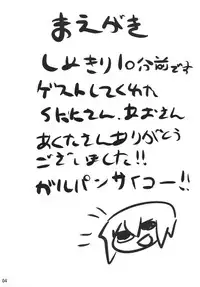 まえがき
しめきり10分前です
ゲストしてくれた
くたにさん、あおさん
あくたさんありがとう
ございました!!
ガルパンサイコー!!
04